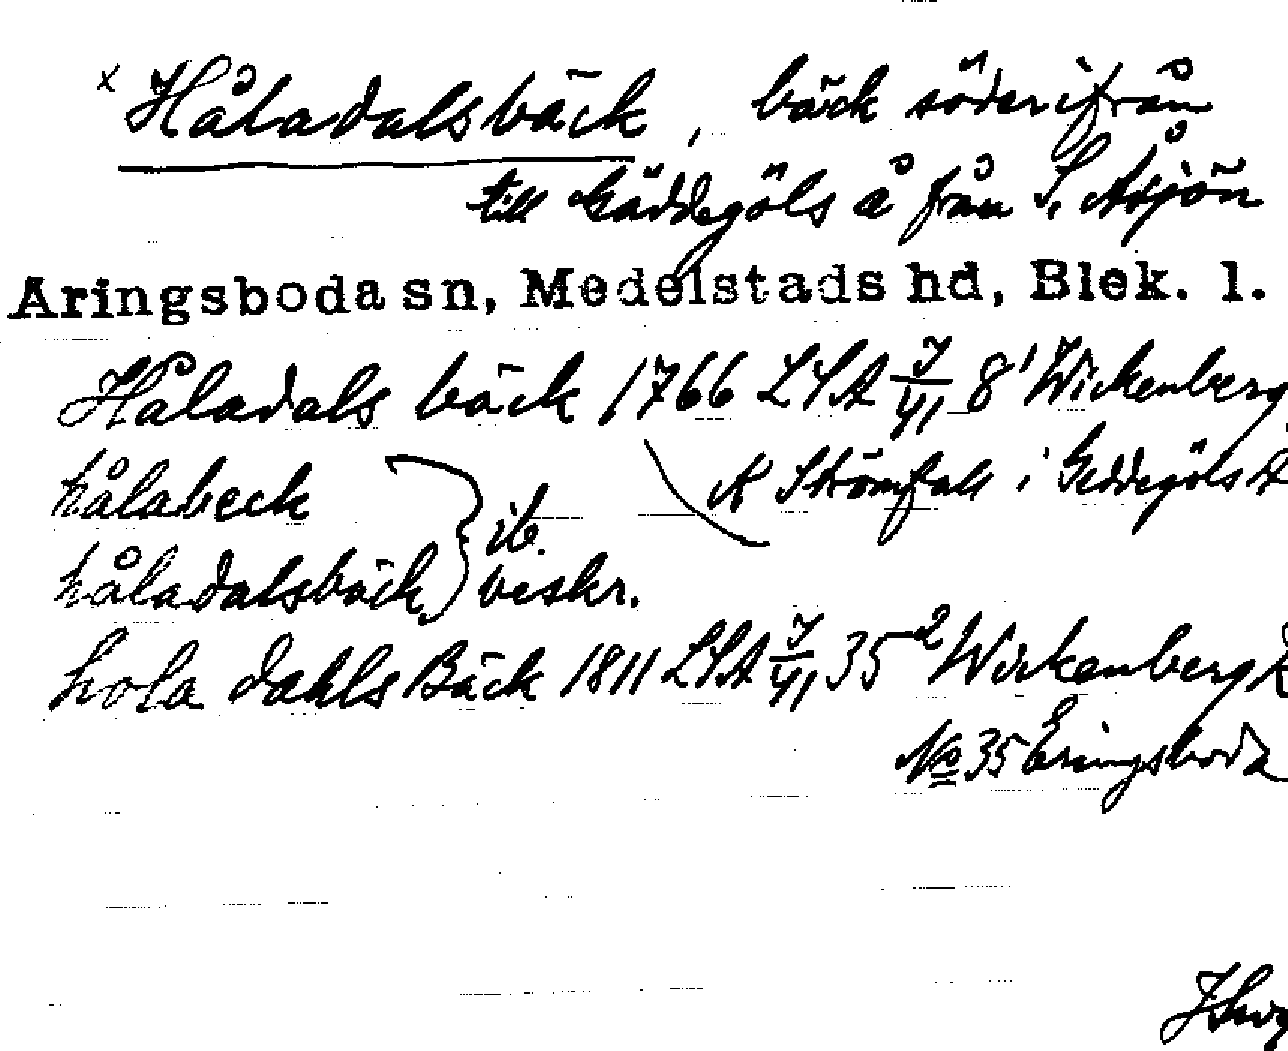 x Håladalsbäck, bäck söderifrån
till Gäddegöls å från S. Åsjön
Aringsboda sn, Medelstads hd, Blek. l.
Håladals bäck 1766 LSA J/41 8¹ Wickenberg
hålabeck
K Strömfall i Geddegöls
håladalsbäck } ib. beskr.
hola dahls Bäck 1811 LSA J/41 35² Wickenberg
No 35 Eringsboda